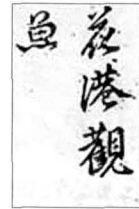 花港觀
魚